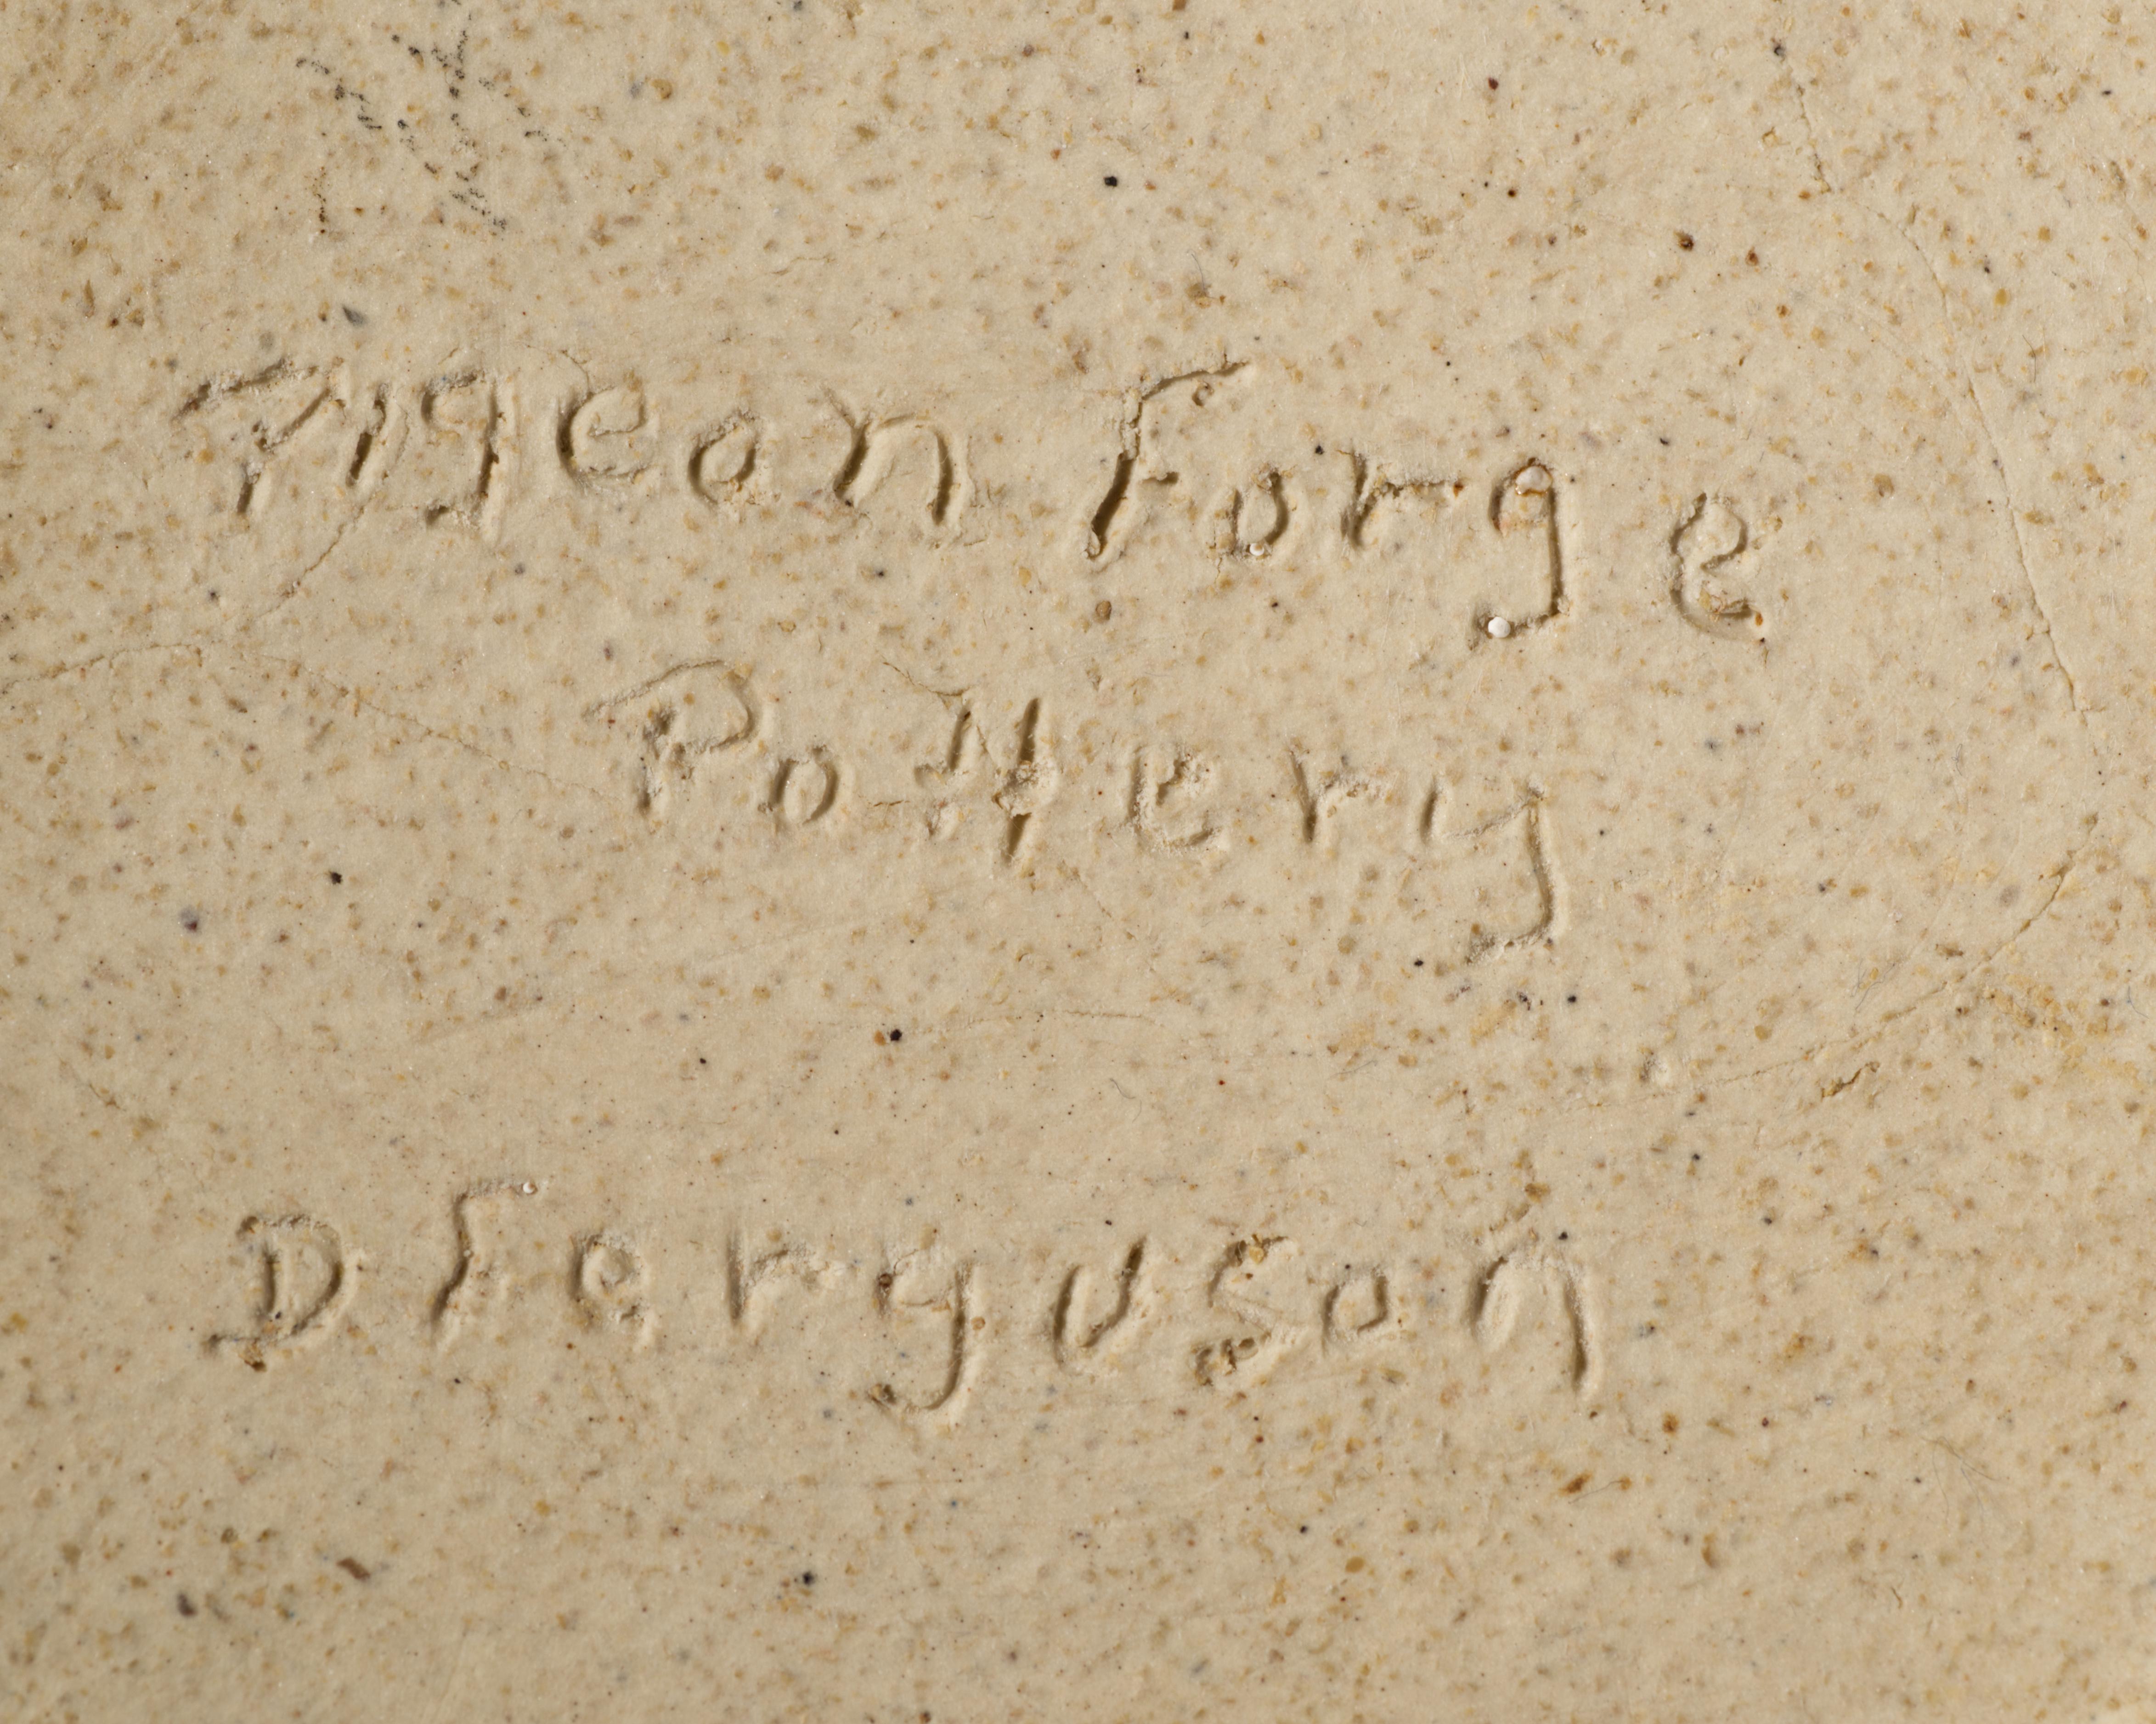 Pigeon Forge
Pottery
D Ferguson